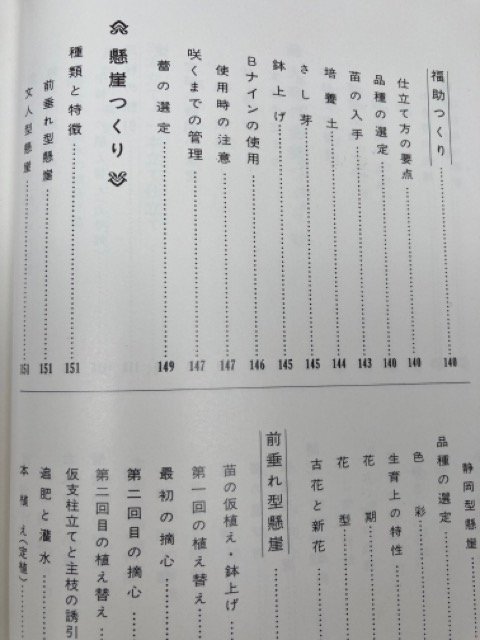 福助つくり……140
仕立て方の要点……140
品種の選定……140
苗の入手……143
培養土……144
さし芽……145
鉢上げ……145
Bナインの使用……146
使用時の注意……147
咲くまでの管理……147
蕾の選定……149
懸崖つくり
種類と特徴……151
前垂れ型懸崖……151
文人型懸崖……151
静岡型懸崖
品種の選定
生育上の特性
色彩
花期
花型
古花と新花
前垂れ型懸崖
苗の仮植え・鉢上げ
第一回の植え替え
最初の摘心
第二回目の摘心
第二回目の植え替え
仮支柱立てと主枝の誘引
追肥と灌水
本植え(定植)